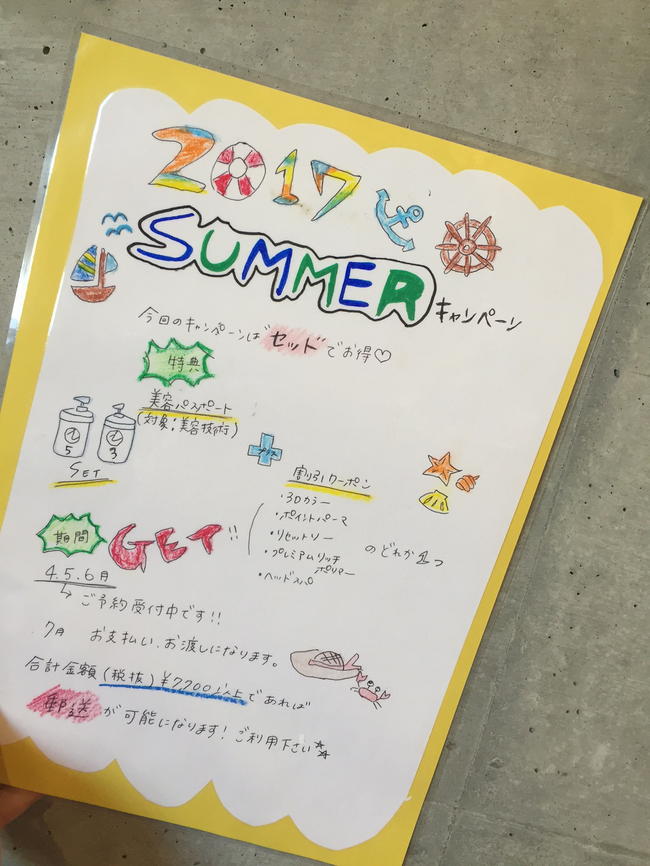 2017
SUMMER キャンペーン
今回のキャンペーンは"セット"でお得♡
特典
美容パスポート
(対象:美容技術)
5 3
SET
プラス
割引クーポン
・3Dカラー
・ポイントパーマ
・リセットソー
・プレミアムリッチ
ポリマー
・ヘッドスパ
のどれか1つ
期間 GET!!
4.5.6月
↳ ご予約受付中です!!
7月 お支払い、お渡しになります。
合計金額(税抜)¥7700以上であれば
郵送が可能になります!ご利用下さい☆☆